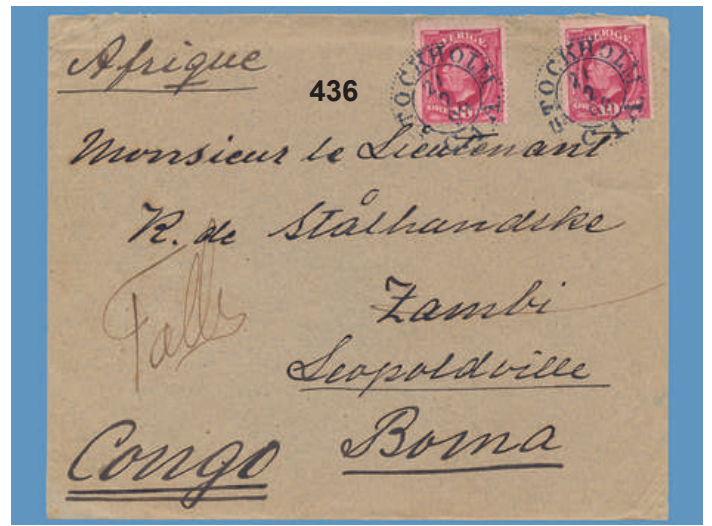 Afrique
436
SVERIGE
SVERIGE
STOCKHOLM
STOCKHOLM
Monsieur le Lieutenant
R. de Stålhandske
Zambi
Leopoldville
Boma
Congo